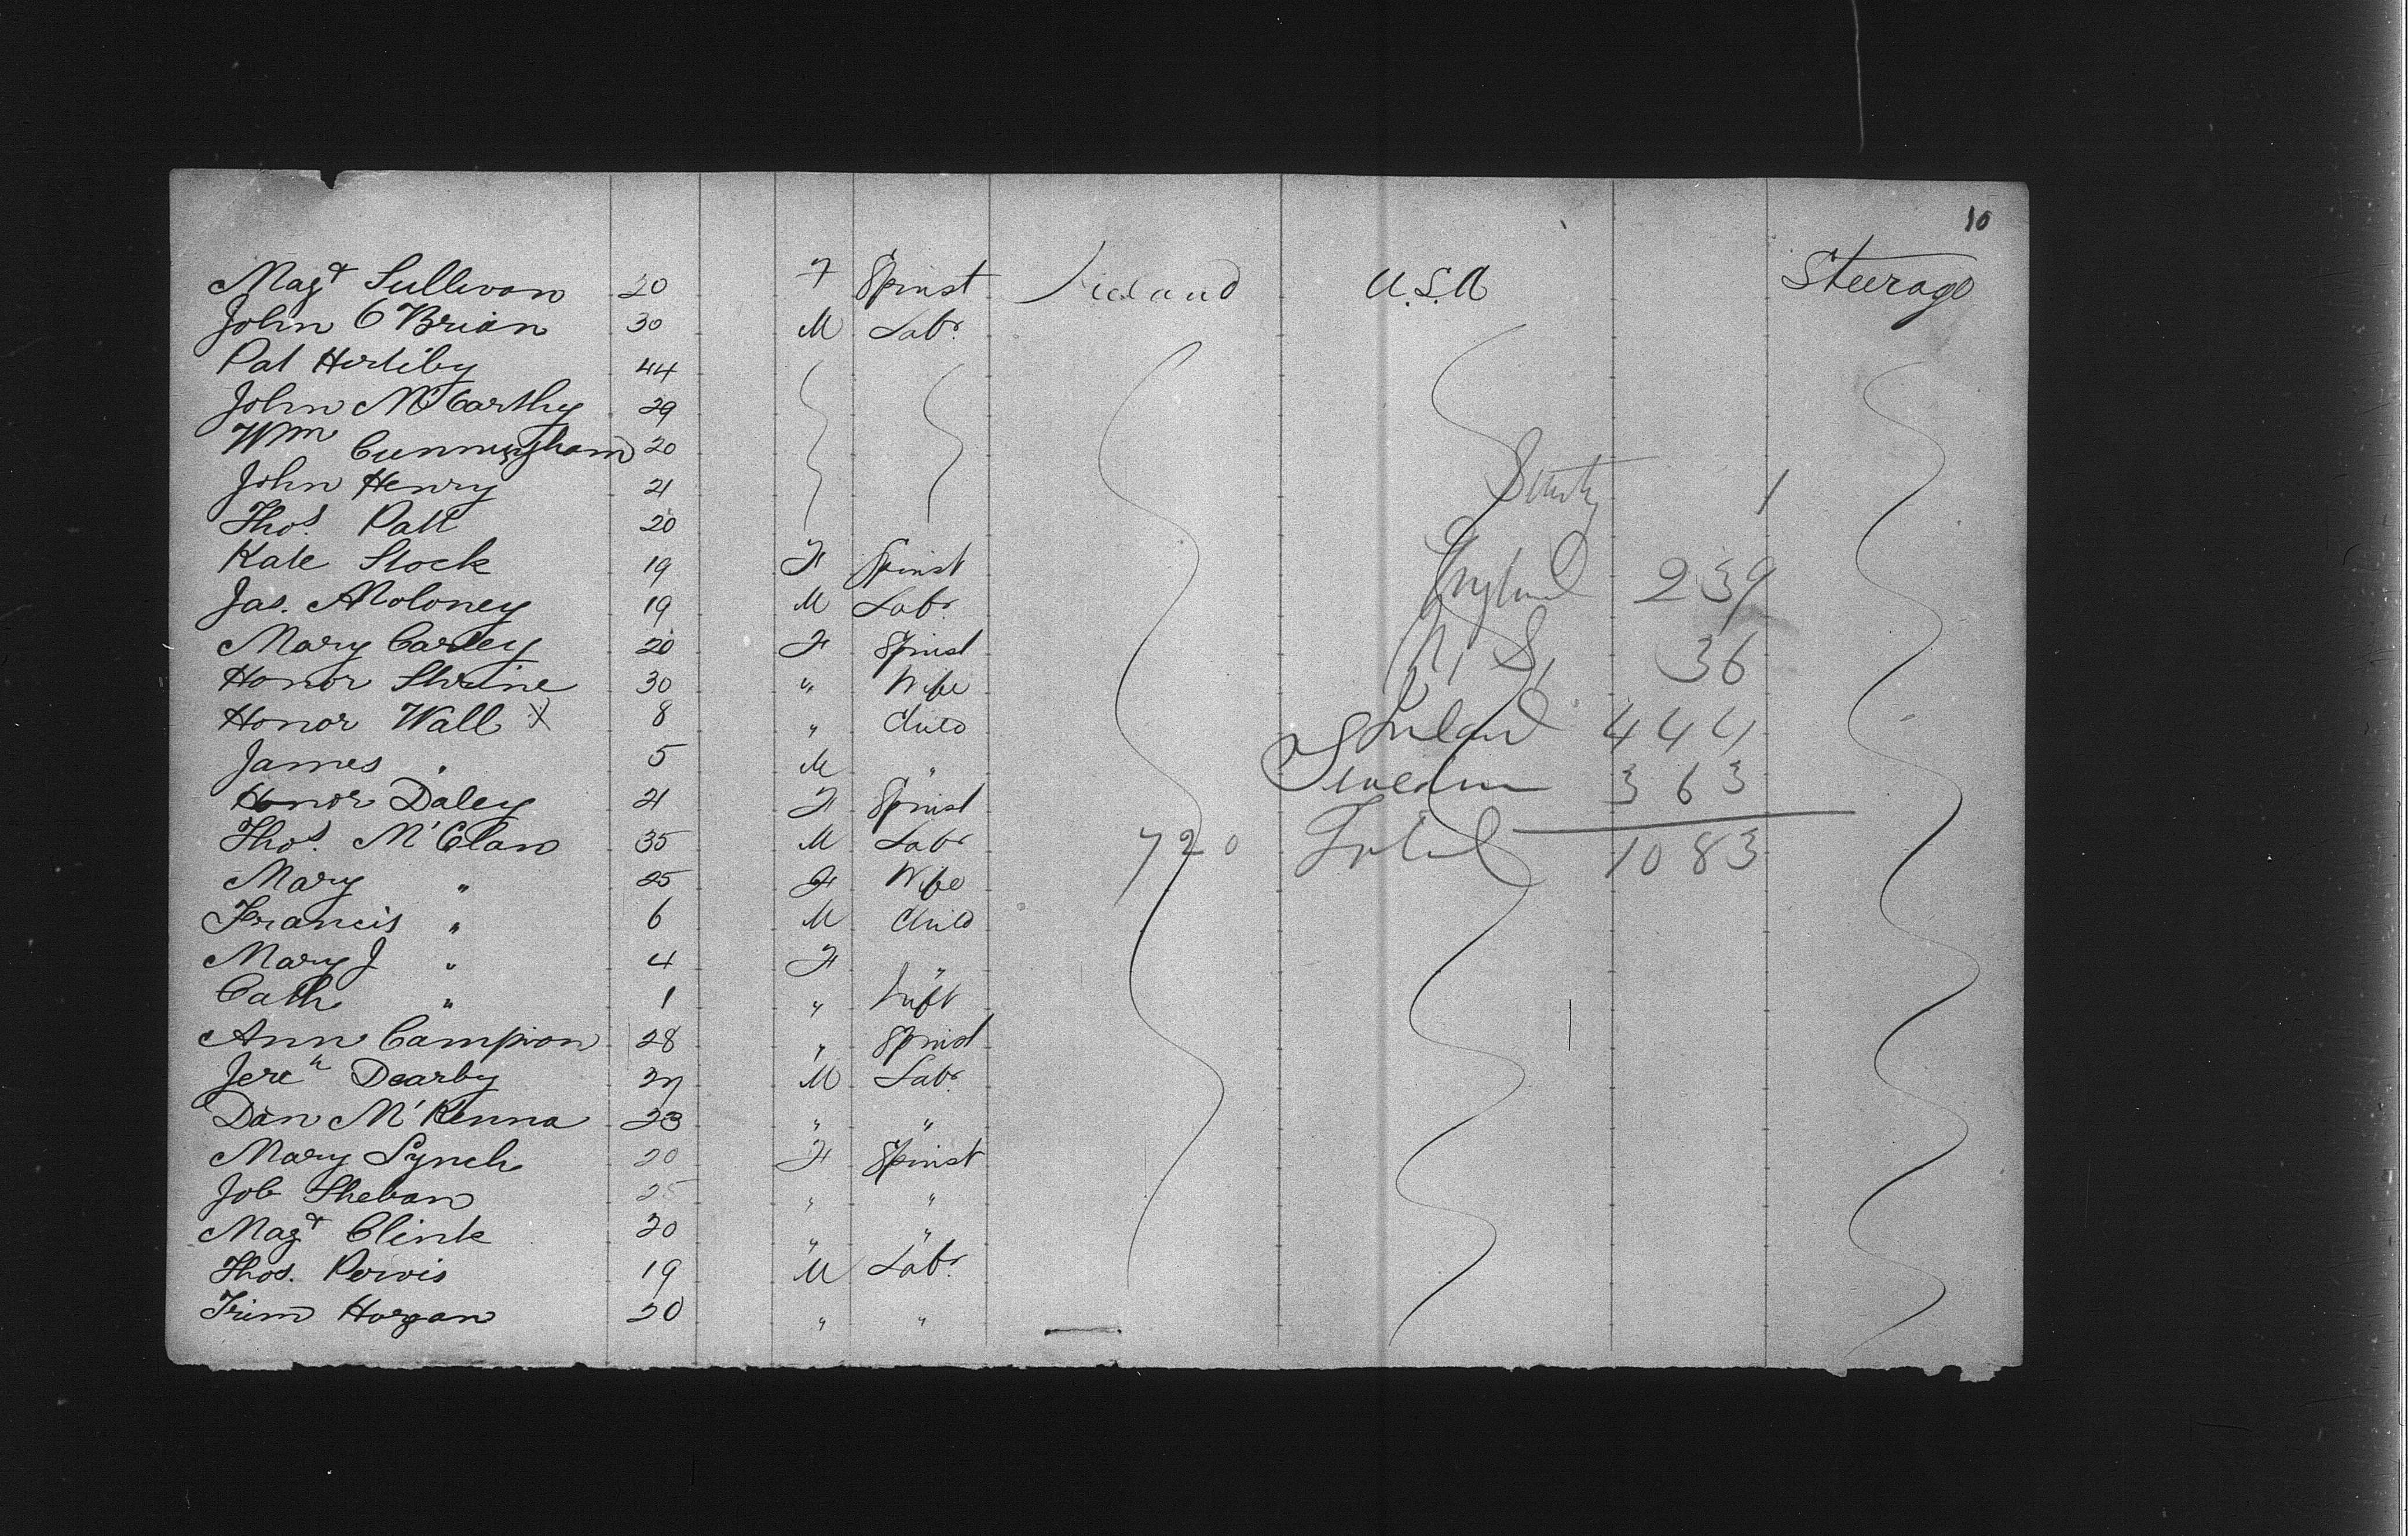 10
Magt Sullivan 20 F Spinst Ireland U.S.A Steerage
John O'Brian 30 M Labr.
Pat Hertiby 44
John McCarthy 29
Wm Cunningham 20
John Henry 21
Thos. Patt 20 1
Kate Stock 19 F Spinst
England 239
Jas. Moloney 19 M Labr.
Mary Carley 20 F Spinst
U, S, 36
Honor Shrine 30 " Wife
Honor Wall X 8 " Child
Ireland 444
James " 5 M "
Sweden 363
Honor Daley 21 F Spinst
Thos. M'Clan 35 M Labr
720 Total 1083
Mary " 25 F Wife
Francis " 6 M Child
Mary J " 4 F "
Cath " 1 " Inft
Ann Campion 28 " Spinst
Jereh Dearby M Labr.
Dan M'Kenna 23 " "
Mary Lynch 20 F Spinst
Job Sheban 25 " "
Magt Clink 20 " "
Thos. Pervis 19 M Labr.
Trim Horgan 20 " "